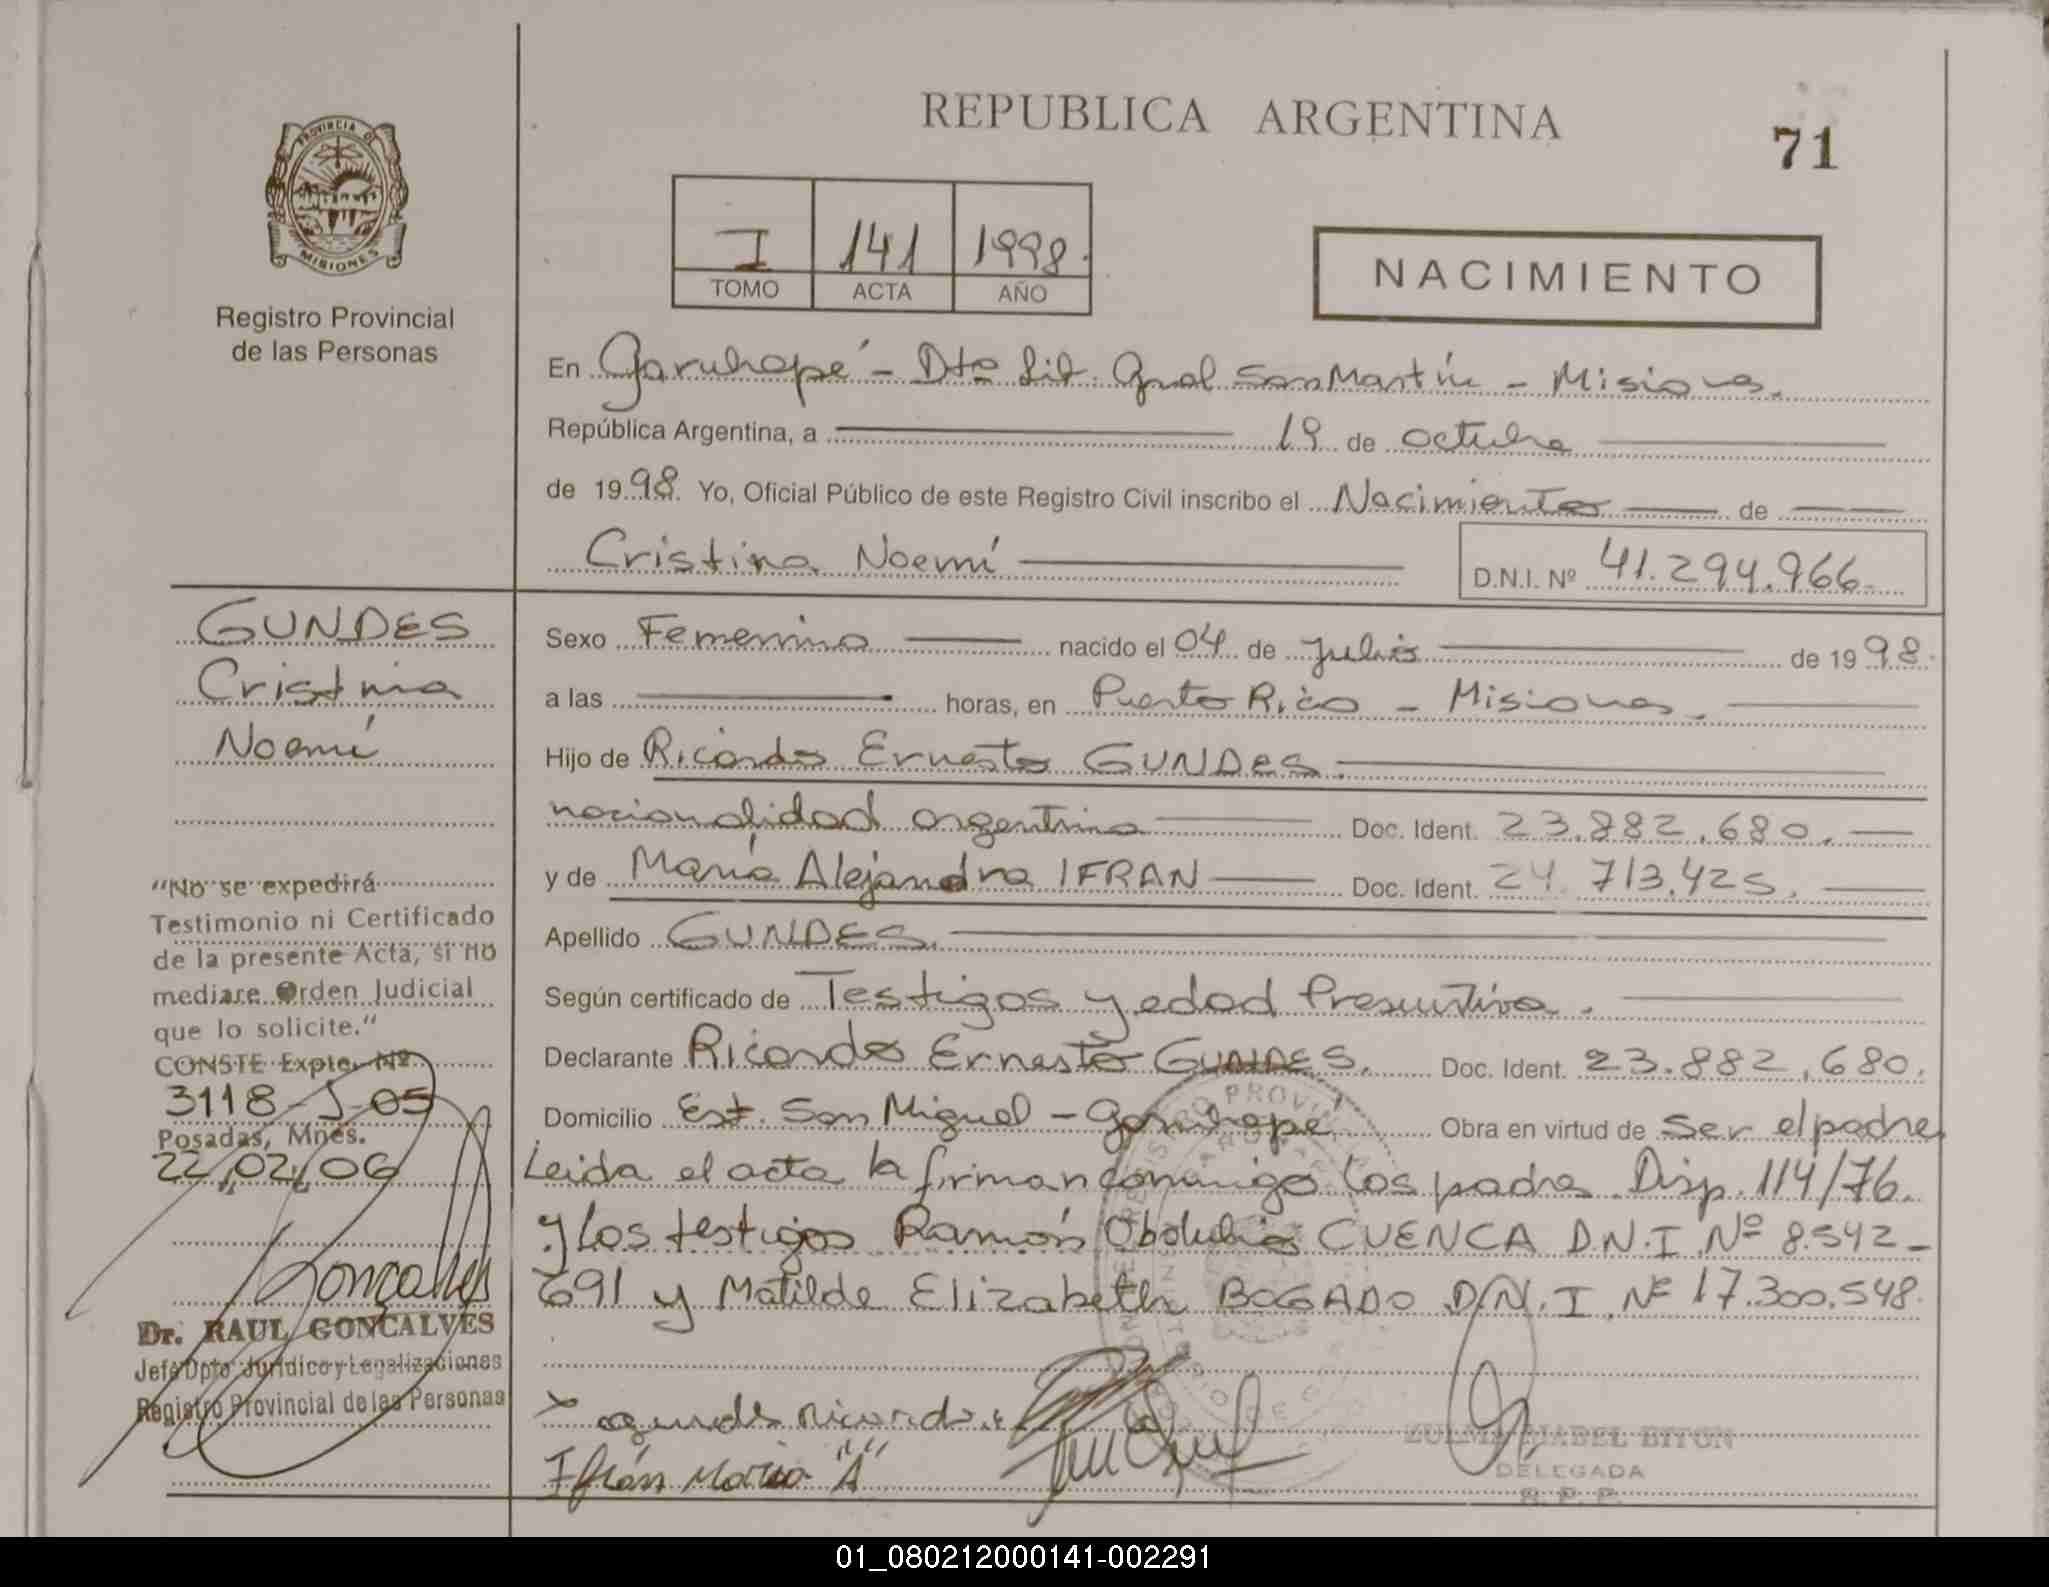 REPUBLICA ARGENTINA
71
PROVINCIA DE
MISIONES
Registro Provincial
de las Personas
I 141 1998.
TOMO ACTA AÑO
NACIMIENTO
En Garuhapé - Dto Lib. Gral San Martín - Misiones.
República Argentina, a 19 de octubre
de 1998. Yo, Oficial Público de este Registro Civil inscribo el Nacimiento de
Cristina Noemí D.N.I. Nº 41.294.966.
GUNDES
Cristina
Noemí
Sexo Femenino nacido el 04 de Julio de 1998.
a las horas, en Puerto Rico - Misiones.
Hijo de Ricardo Ernesto GUNDES.
nacionalidad argentina Doc. Ident. 23.882.680.
y de María Alejandra IFRAN Doc. Ident. 24.713.425.
Apellido GUNDES.
Según certificado de Testigos y edad Presuntiva.
Declarante Ricardo Ernesto GUNDES. Doc. Ident. 23.882.680.
Domicilio Est. San Miguel - Garuhape Obra en virtud de ser el padre
Leida el acta la firman conmigo los padres Disp. 114/76.
y los testigos Ramón Obdulio CUENCA D.N.I Nº 8.542-
691 y Matilde Elizabeth BOGADO D.N.I. Nº 17.300.548.
"No se expedirá
Testimonio ni Certificado
de la presente Acta, si no
mediare Orden Judicial
que lo solicite."
CONSTE Expte. Nº
3118-J-05
Posadas, Mnes.
22,02,06
Goncalves
Dr. RAUL GONCALVES
Jefe Dpto Jurídico y Legalizaciones
Registro Provincial de las Personas
gundes ricardo e
Ifrán Maria "A"
ZULMA ISABEL BITON
DELEGADA
R. P. P.
01_080212000141-002291